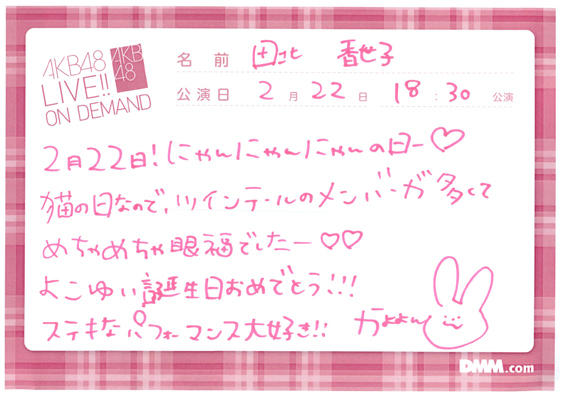 AKB48
LIVE!!
ON DEMAND
AKB
48
名前 田北 香世子
公演日 2月22日 18:30 公演
2月22日!にゃんにゃんにゃんの日ー♡
猫の日なので、ツインテールのメンバーが多くて
めちゃめちゃ眼福でしたー♡♡
よこゆい誕生日おめでとう!!!
ステキなパフォーマンス大好き!! かよよん
DMM.com